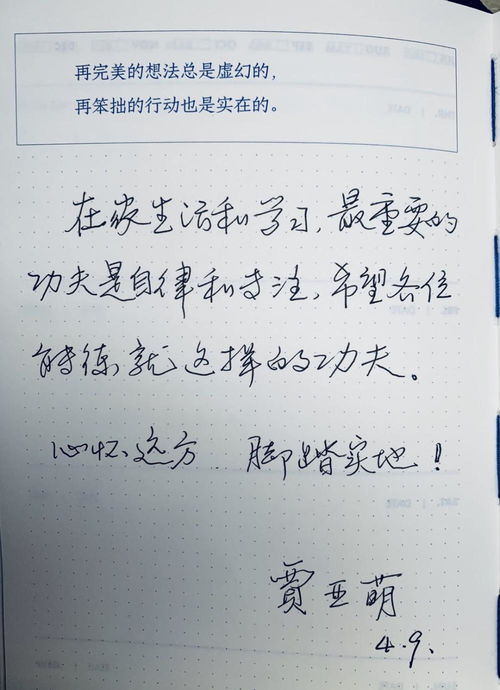 再完美的想法总是虚幻的，
再笨拙的行动也是实在的。
在家生活和学习，最重要的
功夫是自律和专注，希望各位
能练就这样的功夫。
心怀远方 脚踏实地！
贾亚萌
4.9.